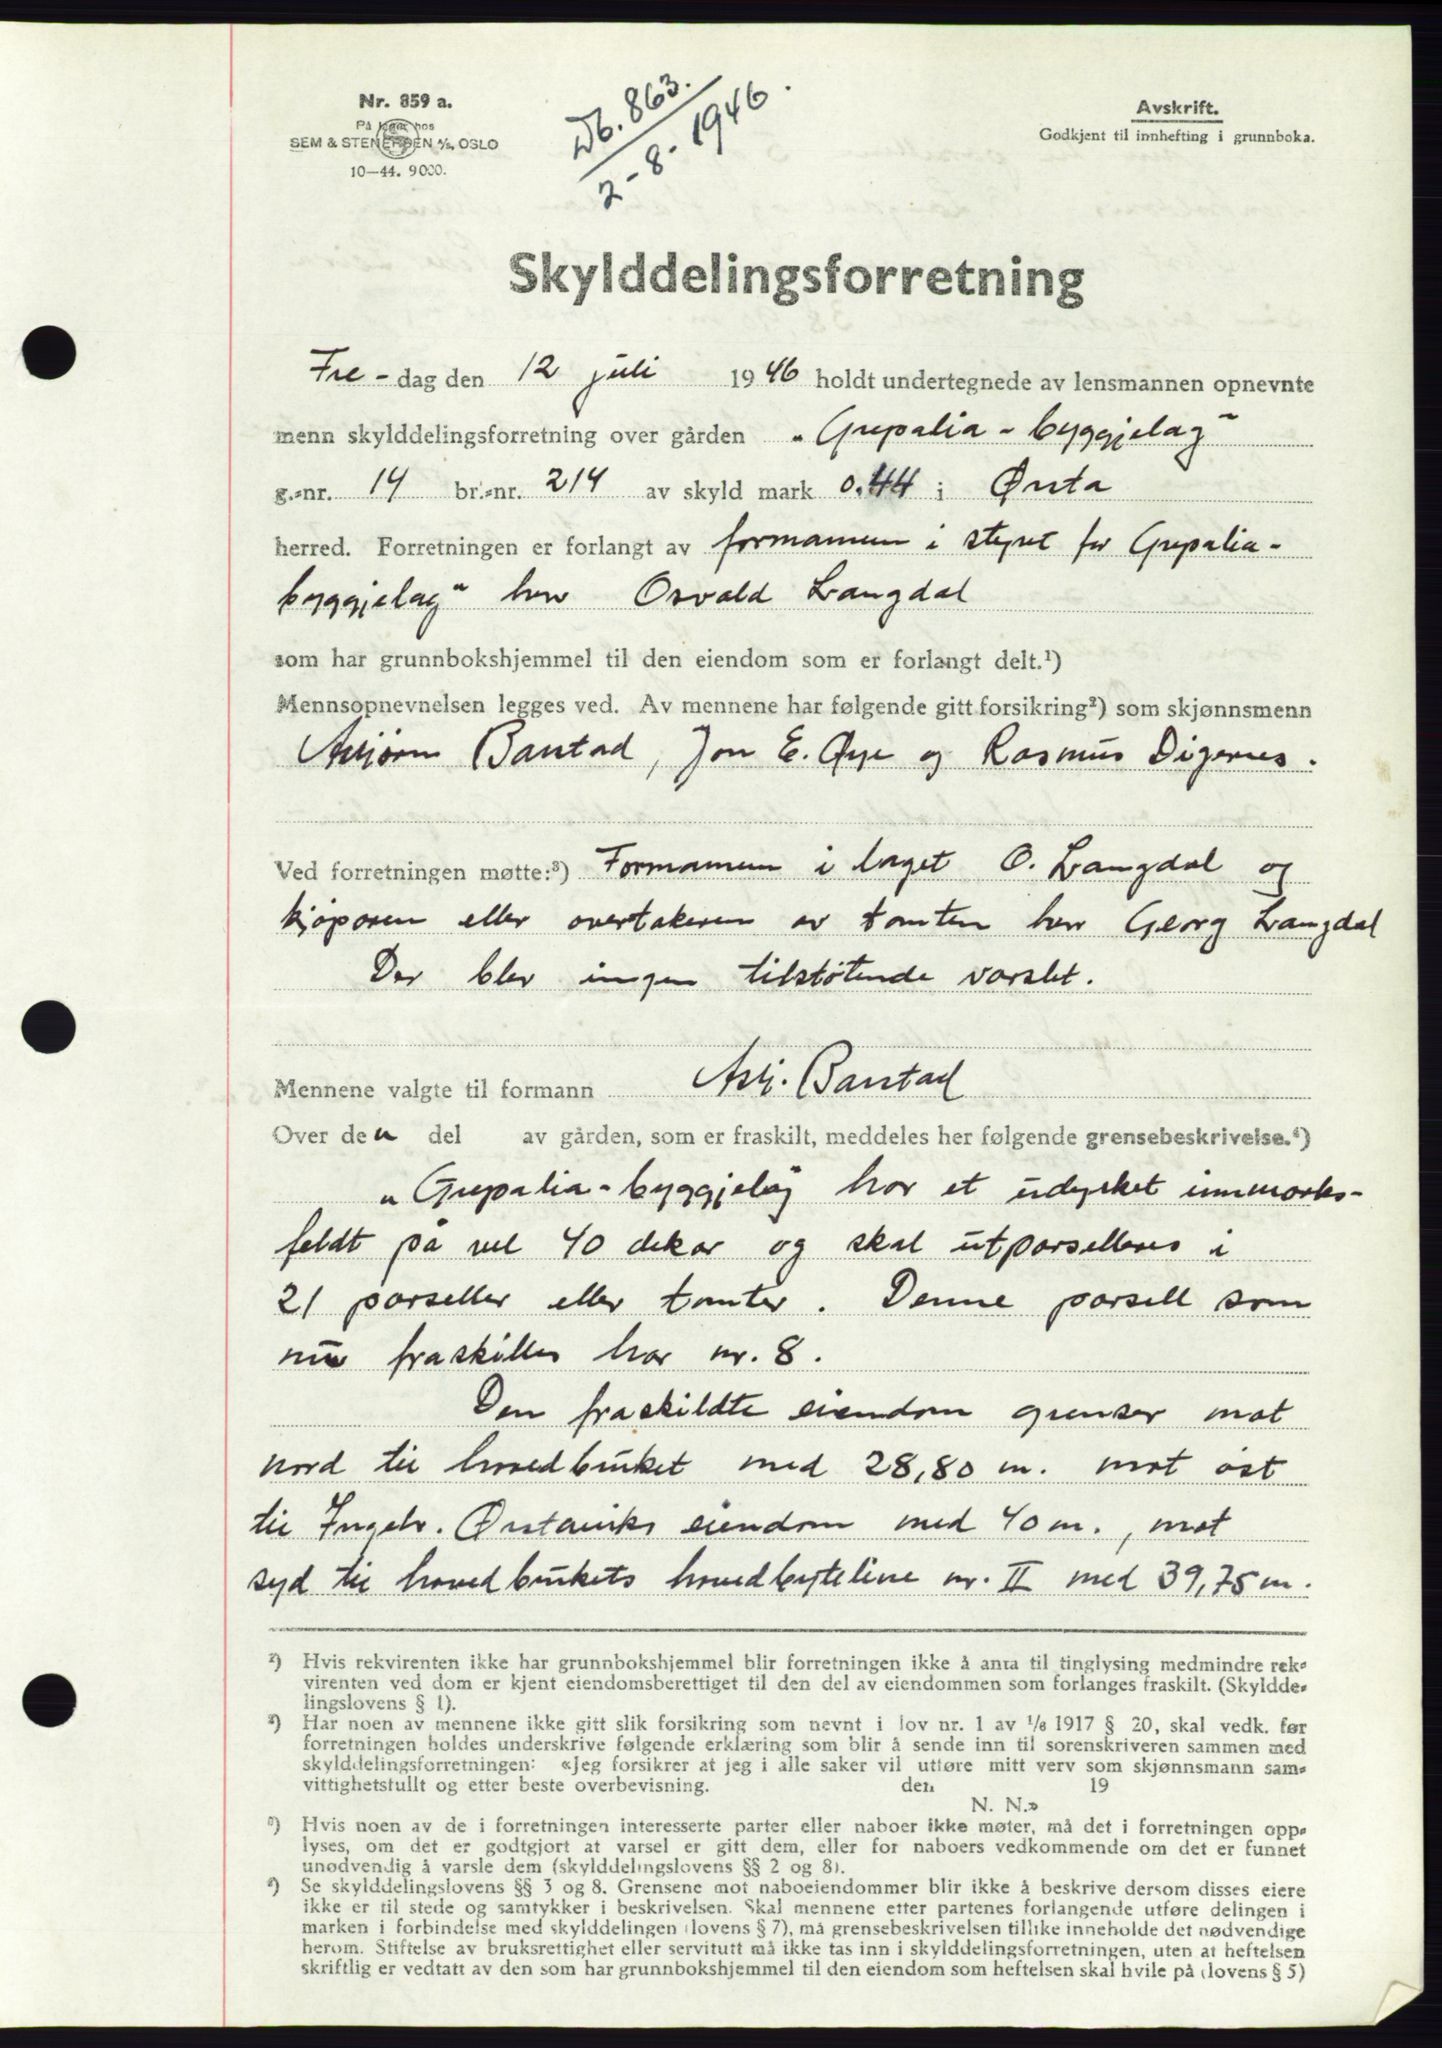 Nr. 859 a.
På lager hos
SEM & STENERSEN A/S, OSLO
10—44. 9000.
Db. 863.
2-8-1946.
Avskrift.
Godkjent til innhefting i grunnboka.
Skylddelingsforretning
Fre-dag den 12 juli 1946 holdt undertegnede av lensmannen opnevnte
menn skylddelingsforretning over gården „Grepalia-byggjelag"
g.-nr. 14 br.-nr. 214 av skyld mark 0.44 i Ørsta
herred. Forretningen er forlangt av formannen i styret for Grepalia-
byggjelag" herr Osvald Langdal
som har grunnbokshjemmel til den eiendom som er forlangt delt.¹)
Mennsopnevnelsen legges ved. Av mennene har følgende gitt forsikring²) som skjønnsmenn
Asbjørn Barstad, Jon E. Øye og Rasmus Digernes.
Ved forretningen møtte:³) Formannen i laget O. Langdal og
kjøperen eller overtakeren av tomten herr Georg Langdal
Der blev ingen tilstøtende varslet.
Mennene valgte til formann Asbj. Barstad
Over den del av gården, som er fraskilt, meddeles her følgende grensebeskrivelse.⁴)
„Grepalia-byggjelag har et udyrket innmarks-
feldt på vel 40 dekar og skal utparselleres i
21 parseller eller tomter. Denne parsell som
nu fraskilles har nr. 8.
Den fraskildte eiendom grenser mot
nord til hovedbruket med 28,80 m. mot øst
til Ingebr. Ørstaviks eiendom med 40 m., mot
syd til hovedbrukets hovedbyteline nr. II med 39,75 m.
¹) Hvis rekvirenten ikke har grunnbokshjemmel blir forretningen ikke å anta til tinglysing medmindre rek-
virenten ved dom er kjent eiendomsberettiget til den del av eiendommen som forlanges fraskilt. (Skyldde-
lingslovens § 1).
²) Har noen av mennene ikke gitt slik forsikring som nevnt i lov nr. 1 av 1/6 1917 § 20, skal vedk. før
forretningen holdes underskrive følgende erklæring som blir å sende inn til sorenskriveren sammen med
skylddelingsforretningen: «Jeg forsikrer at jeg i alle saker vil utføre mitt verv som skjønnsmann sam-
vittighetsfullt og etter beste overbevisning. den 19
N. N.»
³) Hvis noen av de i forretningen interesserte parter eller naboer ikke møter, må det i forretningen opp-
lyses, om det er godtgjort at varsel er gitt dem, eller for naboers vedkommende om det er funnet
unødvendig å varsle dem (skylddelingslovens §§ 2 og 8).
⁴) Se skylddelingslovens §§ 3 og 8. Grensene mot naboeiendommer blir ikke å beskrive dersom disses eiere
ikke er til stede og samtykker i beskrivelsen. Skal mennene etter partenes forlangende utføre delingen i
marken i forbindelse med skylddelingen (lovens § 7), må grensebeskrivelsen tillike inneholde det nødvendige
herom. Stiftelse av bruksrettighet eller servitutt må ikke tas inn i skylddelingsforretningen, uten at heftelsen
skriftlig er vedtatt av den som har grunnbokshjemmel til den eiendom som heftelsen skal hvile på (lovens § 5)